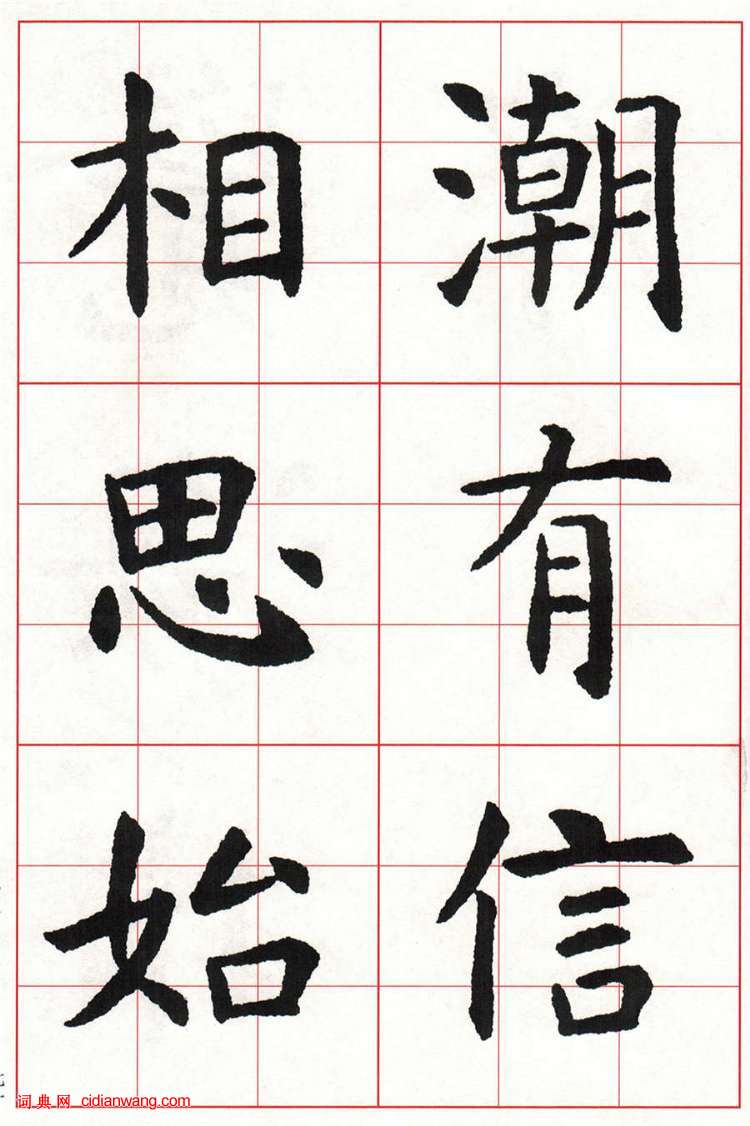 潮有信
相思始
词典网 cidianwang.com